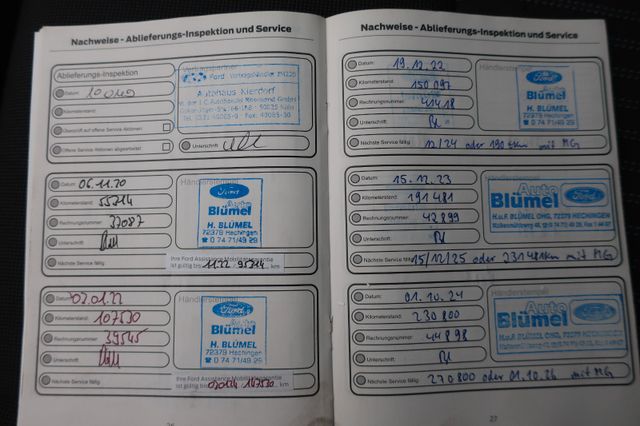 Nachweise - Ablieferungs-Inspektion und Service
Ablieferungs-Inspektion
Datum:
Kilometerstand:
Überprüft auf offene Service Aktionen
Offene Service Aktionen abgearbeitet
Ford
Autohaus Nierdorf
Unterschrift:
Datum: 06.11.20
Kilometerstand: 55214
Rechnungsnummer: 37087
Unterschrift:
Nächste Service fällig:
Händlerstempel
Ford
Auto
Blümel
H. BLÜMEL
72379 Hechingen
0 74 71/49 29
Ihre Ford Assistance Mobilitätsgarantie
ist gültig bis 11.22 / 95214 km
Datum: 02.01.22
Kilometerstand: 107530
Rechnungsnummer: 39545
Unterschrift:
Nächste Service fällig:
Händlerstempel
Ford
Auto
Blümel
H. BLÜMEL
72379 Hechingen
0 74 71/49 29
Ihre Ford Assistance Mobilitätsgarantie
ist gültig bis 020124 147530 km
Nachweise - Ablieferungs-Inspektion und Service
Datum: 19.12.22
Kilometerstand: 150 097
Rechnungsnummer: 41418
Unterschrift:
Nächste Service fällig: 12/24 oder 190 tkm mit MG
Händlerstempel
Ford
Auto
Blümel
H. BLÜMEL
72379 Hechingen
0 74 71/49 29
Datum: 15.12.23
Kilometerstand: 191 481
Rechnungsnummer: 42 899
Unterschrift:
Nächste Service fällig: 15/12/25 oder 231481km mit MG
Auto
Blümel
Ford
H.u.F. BLÜMEL OHG, 72379 HECHINGEN
Datum: 01.10.24
Kilometerstand: 230 800
Rechnungsnummer: 44898
Unterschrift:
Nächste Service fällig:
270 800 oder 01.10.26 mit MG
Händlerstempel
Auto
Blümel
Ford
H.u.F. BLÜMEL OHG, 72379 HECHINGEN
26
27